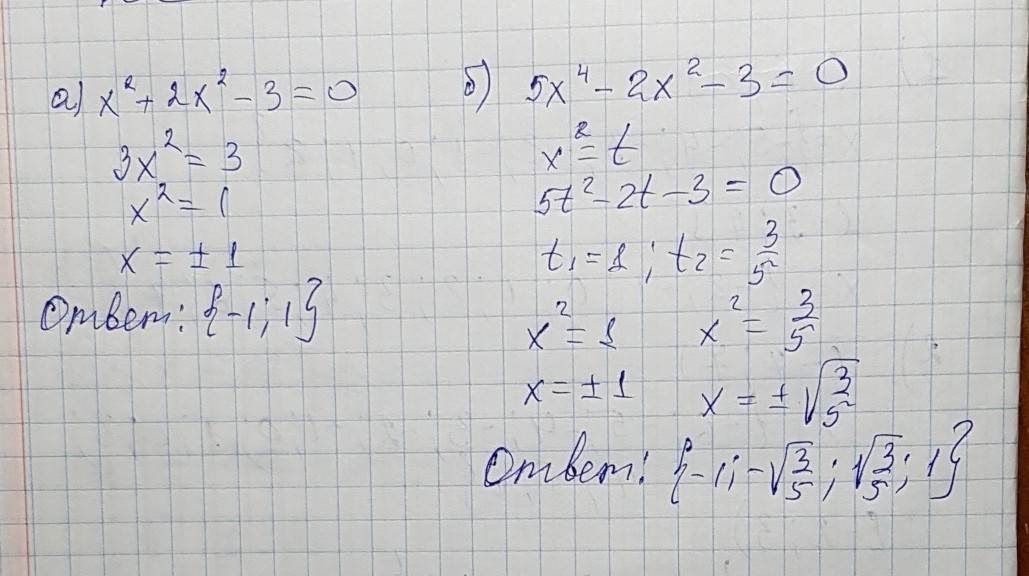 а) x² + 2x² - 3 = 0
3x² = 3
x² = 1
x = ± 1
Ответ: {-1; 1}
б) 5x⁴ - 2x² - 3 = 0
x² = t
5t² - 2t - 3 = 0
t₁ = 1 ; t₂ = 3/5
x² = 1 x² = 3/5
x = ± 1 x = ± √(3/5)
Ответ: {-1; -√(3/5) ; √(3/5) ; 1}